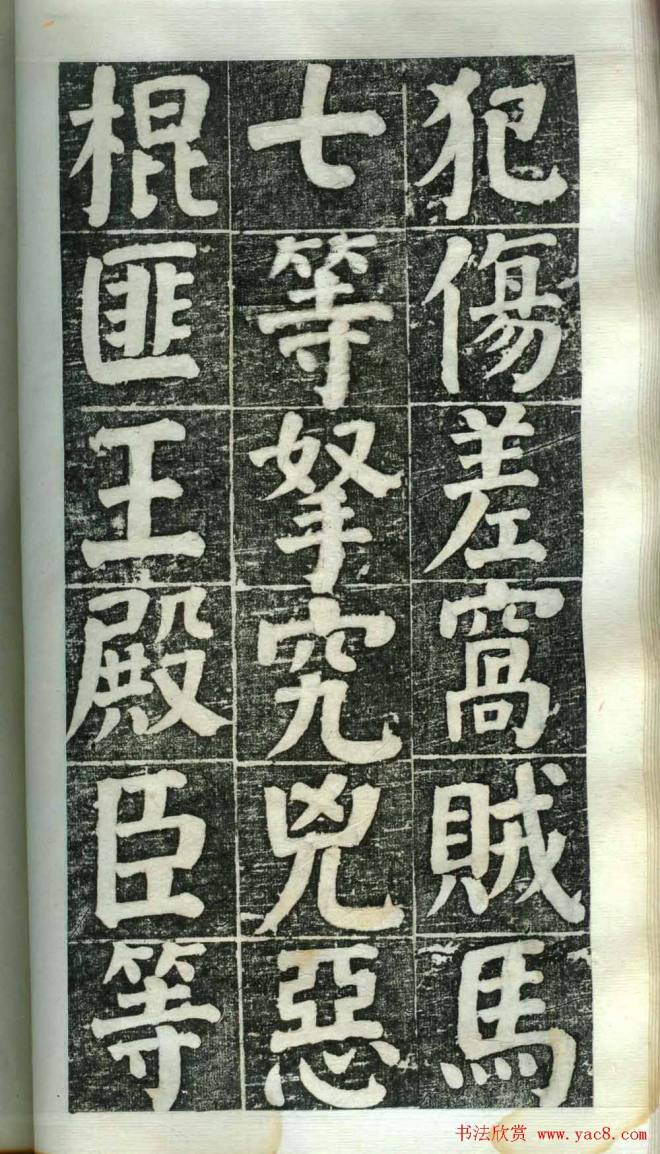 犯傷差窩賊馬
七等拏究兇惡
棍匪王殿臣等
书法欣赏 www.yac8.com